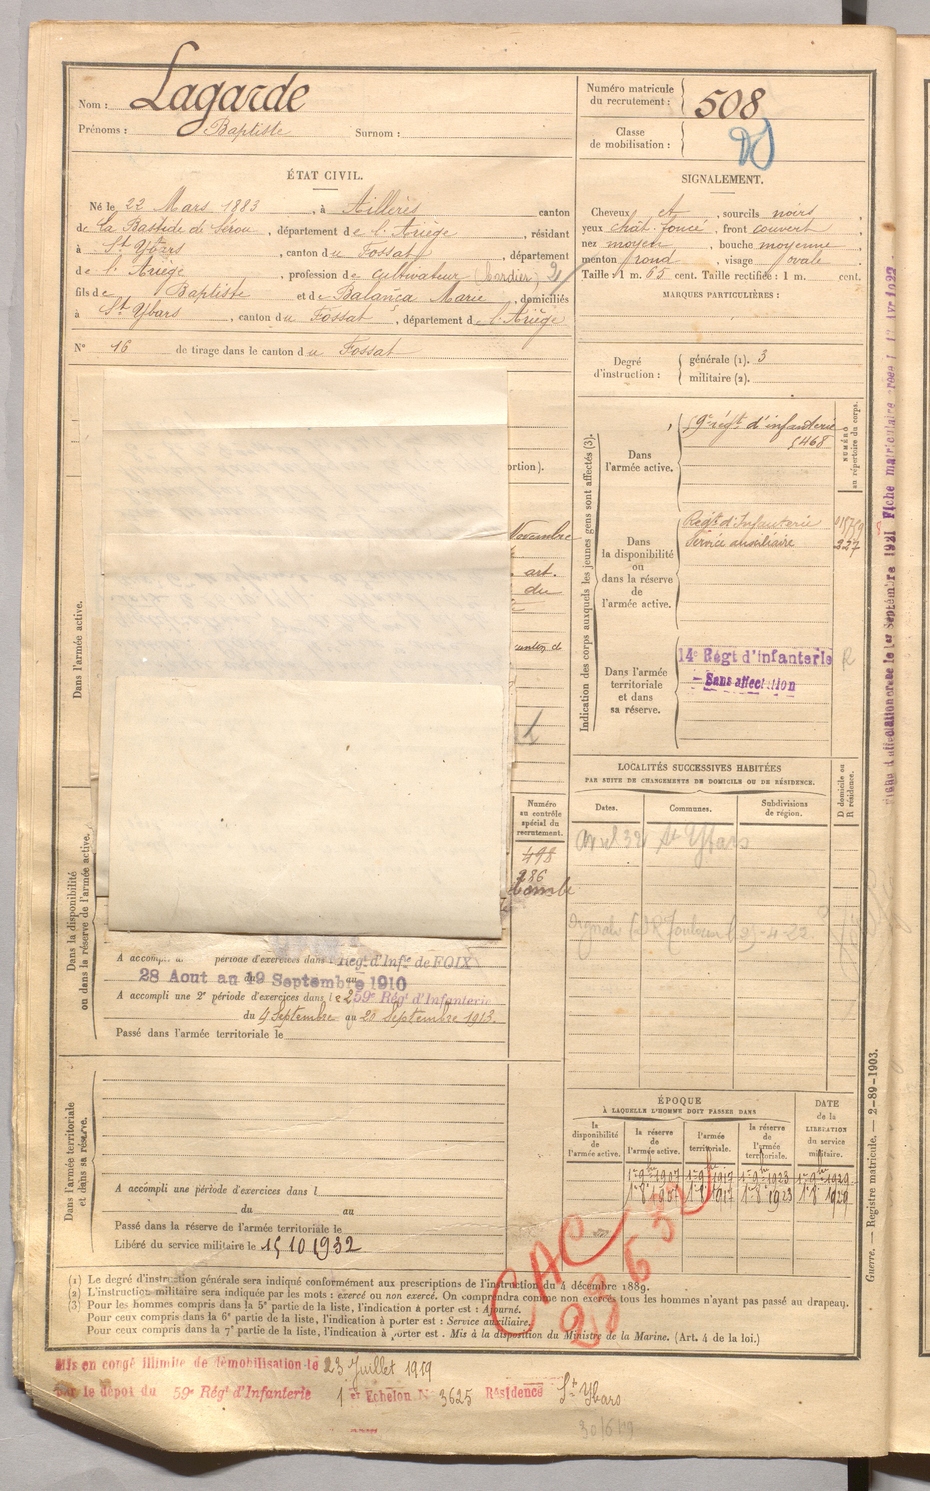 Nom : Lagarde
Prénoms : Baptiste Surnom :
Numéro matricule du recrutement : 508
Classe de mobilisation :
ÉTAT CIVIL.
Né le 22 Mars 1883, à Aillères canton
de La Bastide de Sérou, département de l'Ariège, résidant
à St Ybars, canton du Fossat, département
de l'Ariège, profession de cultivateur (bordier)
fils de Baptiste et de Balança Marie, domiciliés
à St Ybars, canton du Fossat, département de l'Ariège
N° 16 de tirage dans le canton du Fossat
SIGNALEMENT.
Cheveux, sourcils noirs,
yeux chat. foncé, front couvert,
nez moyen, bouche moyenne,
menton rond, visage ovale.
Taille : 1 m. 65 cent. Taille rectifiée : 1 m. cent.
MARQUES PARTICULIÈRES :
Degré d'instruction :
générale (1). 3
militaire (2).
Indication des corps auxquels les jeunes gens sont affectés (3).
NUMÉRO au répertoire du corps.
Dans l'armée active.
59e régt d'infanterie
5468
Dans la disponibilité ou dans la réserve de l'armée active.
Régt d'Infanterie
Service auxiliaire 227
Dans l'armée territoriale et dans sa réserve.
14e Régt d'infanterie
Sans affectation
LOCALITÉS SUCCESSIVES HABITÉES
PAR SUITE DE CHANGEMENTS DE DOMICILE OU DE RÉSIDENCE.
D domicile ou R résidence.
Dates. Communes. Subdivisions de région.
Avril 32 St Ybars
Dans l'armée active.
ortion).
Novembre
art.
du
Numéro au contrôle spécial du recrutement.
498
286
Dans la disponibilité ou dans la réserve de l'armée active.
A accompli période d'exercices dans Régt d'Infie de FOIX
du 28 Aout au 19 Septembre 1910
A accompli une 2e période d'exercices dans le 259e Régt d'Infanterie
du 4 Septembre au 20 Septembre 1913.
Passé dans l'armée territoriale le
Dans l'armée territoriale et dans sa réserve.
A accompli une période d'exercices dans l
du au
Passé dans la réserve de l'armée territoriale le
Libéré du service militaire le 15 10 1932
ÉPOQUE
À LAQUELLE L'HOMME DOIT PASSER DANS
DATE de la LIBÉRATION du service militaire.
la disponibilité de l'armée active.
la réserve de l'armée active.
l'armée territoriale.
la réserve de l'armée territoriale.
CAC
(1) Le degré d'instruction générale sera indiqué conformément aux prescriptions de l'instruction du 4 décembre 1889.
(2) L'instruction militaire sera indiquée par les mots : exercé ou non exercé. On comprendra comme non exercés tous les hommes n'ayant pas passé au drapeau.
(3) Pour les hommes compris dans la 5e partie de la liste, l'indication à porter est : Ajourné.
Pour ceux compris dans la 6e partie de la liste, l'indication à porter est : Service auxiliaire.
Pour ceux compris dans la 7e partie de la liste, l'indication à porter est. Mis à la disposition du Ministre de la Marine. (Art. 4 de la loi.)
Mis en congé illimité de démobilisation le 23 Juillet 1919
par le dépot du 59e Régt d'Infanterie 1er Echelon N° 3625 Résidence St Ybars
Guerre. — Registre matricule. — 2-89-1903.